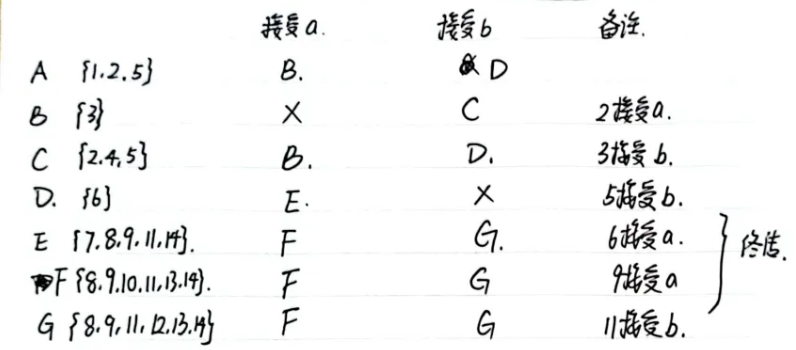 接受a. 接受b 备注.
A {1.2.5} B. D
B {3} X C 2接受a.
C {2.4,5} B. D. 3接受b.
D. {6} E. X 5接受b.
E {7.8.9.11.14}. F G. 6接受a.
F {8.9.10.11.13.14}. F G 9接受a
G {8.9.11.12.13.14} F G 11接受b.